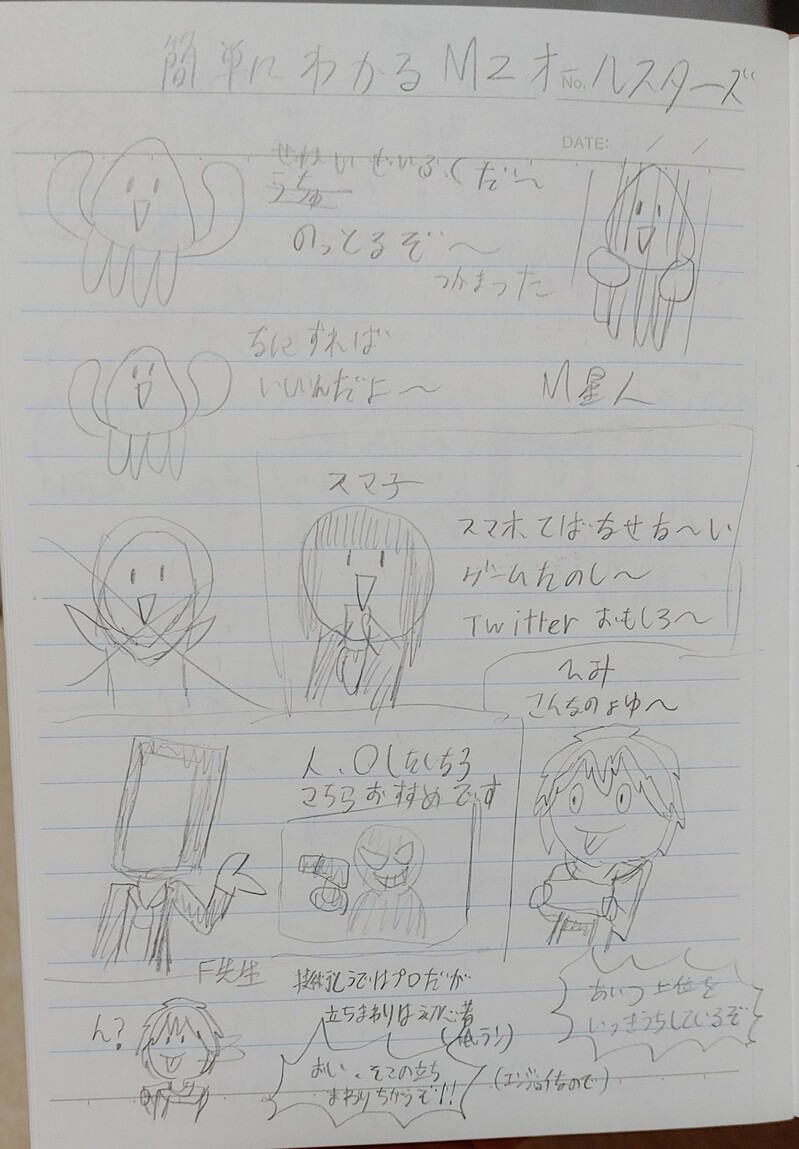 簡単にわかるMZオールスターズ
No.
DATE: / /
せかいせいふくだ〜
うちゅー
のっとるぞ〜
つかまった
なにすれば
いいんだよ〜
M星人
スマ子
スマホ、てばなせな〜い
ゲームたのし〜
Twitterおもしろ〜
こんなのよゆ〜
人、
こちらおすすめです
F先生
うではプロだが
立ちまわりは
ん?
おい、そこの立ち
まわりちがうぞ!!
(エンジョイなので)
あいつ上位を
いっきうちしているぞ